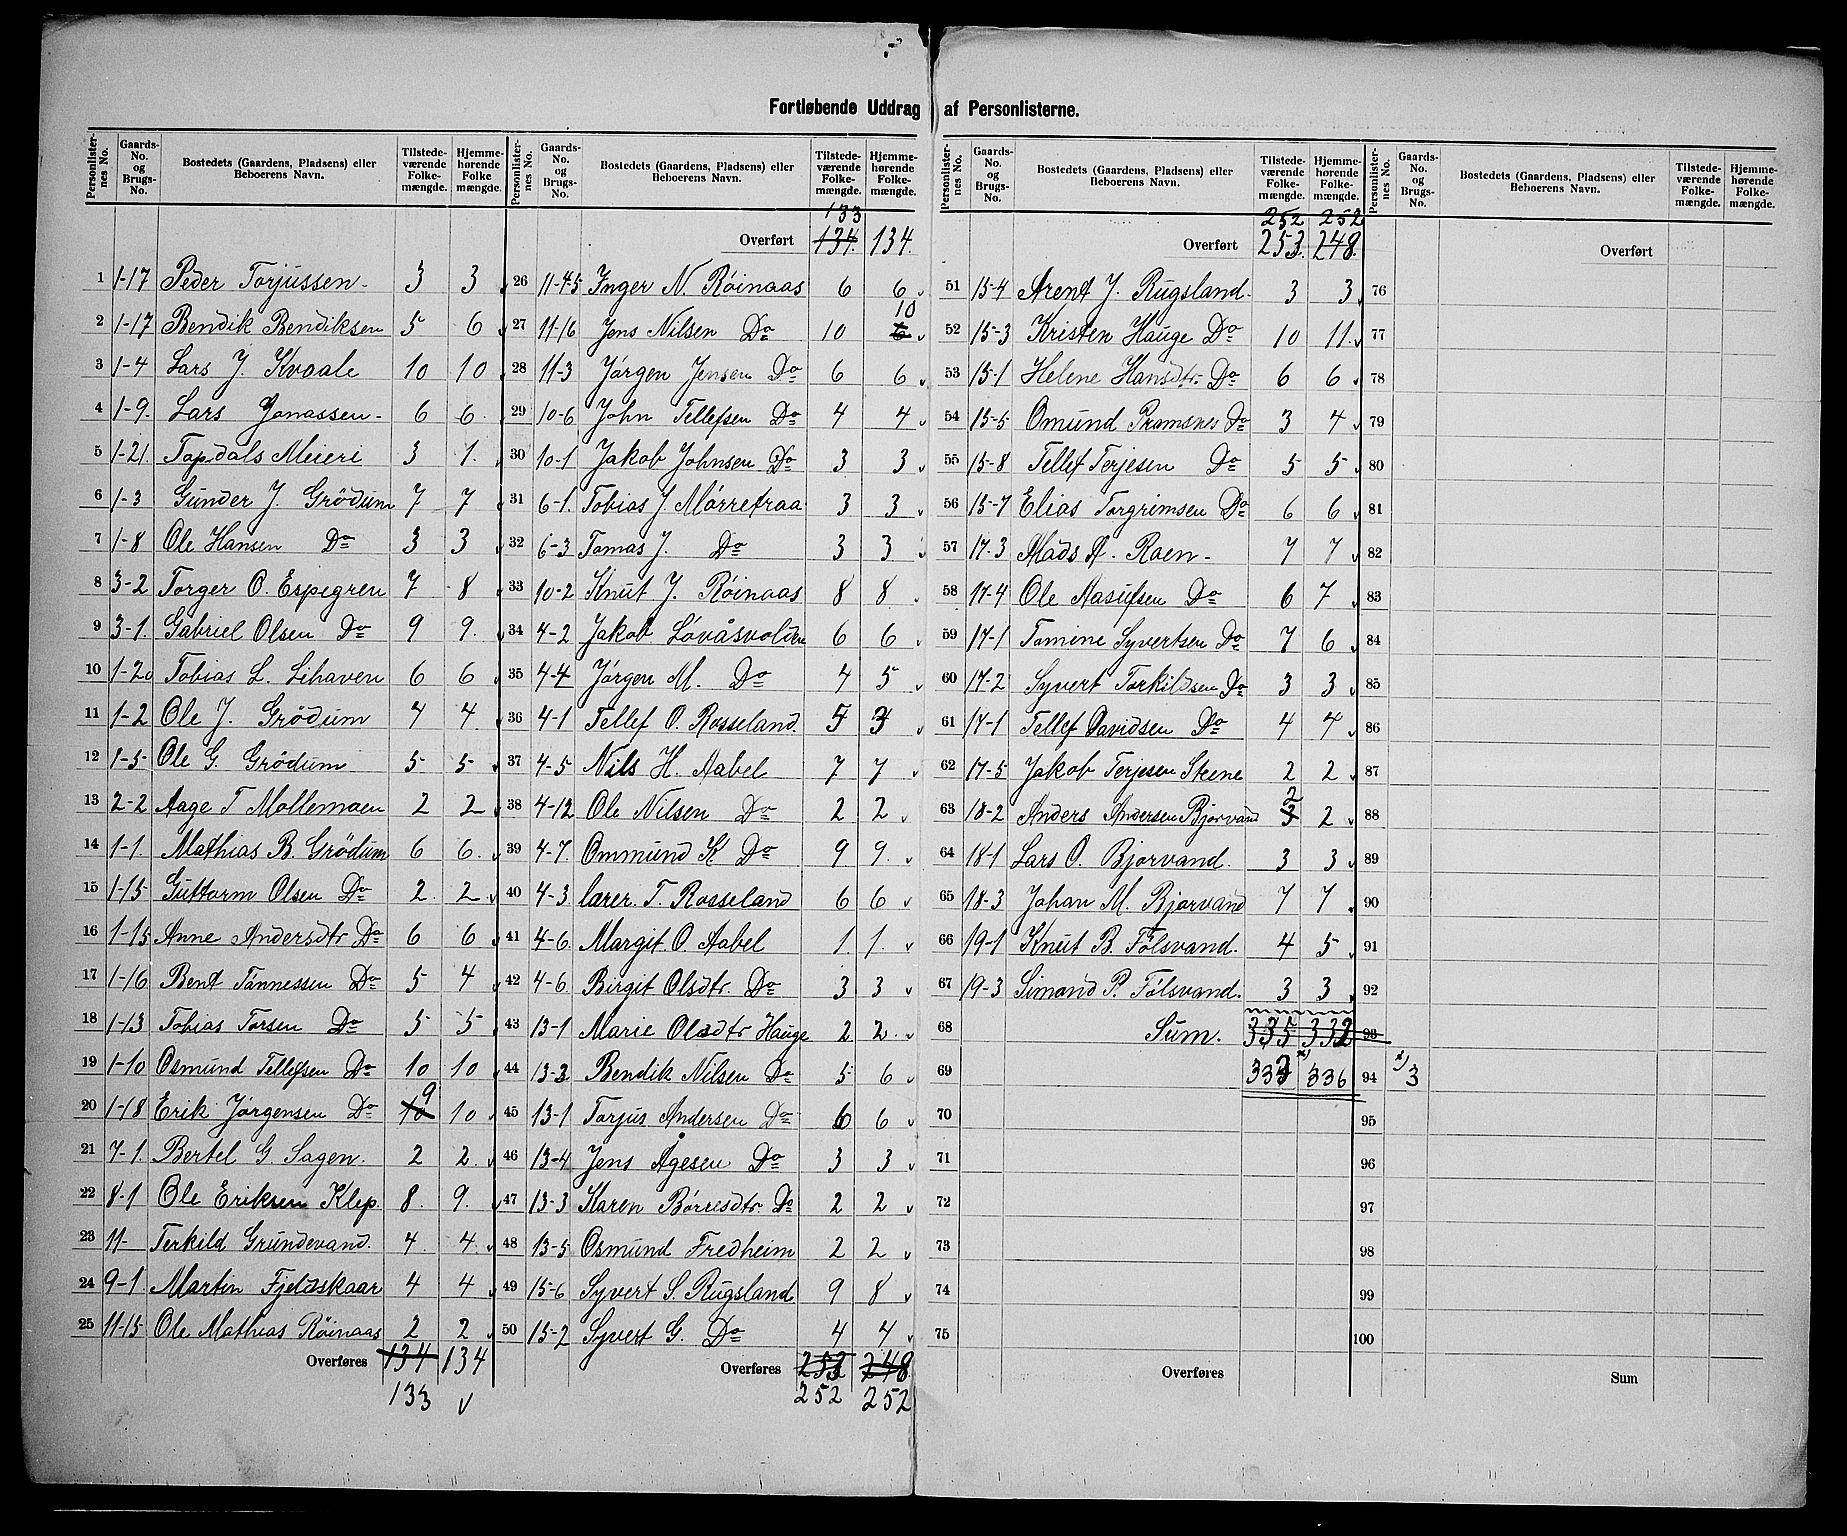 Fortløbende Uddrag af Personlisterne.
Personlisternes No. | Gaards-No. og Brugs-No. | Bostedets (Gaardens, Pladsens) eller Beboerens Navn. | Tilstedeværende Folkemængde. | Hjemmehørende Folkemængde.
1 1-17 Peder Torjussen 3 3
2 1-17 Bendik Bendiksen 5 6
3 1-4 Lars J. Kvaale 10 10
4 1-9. Lars Jonassen 6 6.
5 1-21. Topdals Meieri 3 1.
6 1-3 Gunder J. Grödum 7 7
7 1-8 Ole Hansen Do 3 3
8 3-2 Torger O. Espegren 7 8
9 3-1. Gabriel Olsen Do 9 9.
10 1-20 Tobias L. Lihaven 6 6
11 1-2 Ole J. Grödum 4 4.
12 1-5 Ole G. Grödum 5 5
13 2-2 Aage T Mollemoen 2 2
14 1-1. Mathias B. Grödum 6 6.
15 1-15 Guttorm Olsen Do 2. 2.
16 1-15 Anne Andersdtr Do 6 6
17 1-16 Bent Tannessen Do 5 4
18 1-13 Tobias Torsen Do 5 5
19 1-10 Osmund Tellefsen Do 10 10
20 1-18 Erik Jørgensen Do 10 9 10
21 7-1. Bertel G. Sagen. 2 2.
22 8-1 Ole Eriksen Klep. 8. 9.
23 11- Terkild Grundevand. 4. 4.
24 9-1. Martin Fjeldskaar 4 4
25 11-15 Ole Mathias Röinaas 2 2
Overføres 134 134
133
133
Overført 134. 134.
26 11-45 Inger N. Röinaas 6 6
27 11-16 Jens Nilsen Do 10 6 10
28 11-3 Jörgen Jensen Do 6 6
29 10-6 John Tellefsen Do 4 4
30 10-1 Jakob Johnsen Do 3 3
31 6-1. Tobias J. Mørretraa 3 3
32 6-3 Tomas J. Do 3 3
33 10-2 Knut J. Röinaas 8 8
34 4-2 Jakob Lövåsvolden 6 6
35 4-4 Jörgen M. Do 4 5
36 4-1 Tellef O. Rosseland. 5 3
37 4-5 Nils H. Aabel 7 7
38 4-12 Ole Nilsen Do 2 2
39 4-7. Ommund K Do 9 9.
40 4-3 lærer. T. Rosseland 6 6
41 4-6. Margit. O. Aabel 1. 1.
42 4-6. Birgit Olsdtr. Do 3 3
43 13-1 Marie Olsdtr Hauge 2 2
44 13-2 Bendik Nilsen Do 5 6
45 13-1 Torjus Andersen Do 6 6
46 13-4 Jens Ågesen Do 3 3
47 13-3 Karen Börresdtr. Do 2 2
48 13-5 Osmund Fredheim 2 2
49 15-6 Syvert S. Rugsland 9 8
50 15-2 Syvert G. Do 4 4
Overføres 253 248
252 252
252 252
Overført 253. 248.
51 15-4 Arent J. Rugsland. 3 3
52 15-3 Kristen Hauge Do 10 11.
53 15-1 Helene Hansdtr. Do 6 6
54 15-5 Omund Pramsnes Do 3 4
55 15-8 Tellef Terjesen Do 5 5
56 15-7 Elias Torgrimsen Do 6 6
57 17-3 Mads A. Roen 7 7
58 17-4 Ole Aasufsen Do 6 7
59 17-1 Tomine Syvertsen Do 7 6
60 17-2 Syvert Torkildsen Do 3 3
61 17-1 Tellef Davidsen Do 4 4
62 17-5 Jakob Terjesen Steene 2 2
63 18-2 Anders Andersen Bjorvand 3 2 2
64 18-1 Lars O. Bjorvand. 3 3
65 18-3 Johan M. Bjorvand 7 7
66 19-1 Knut B. Fölsvand. 4 5
67 19-3 Simond P. Fölsvand. 3 3
68 Sum. 335 332
69 333 x) 336
70
71
72
73
74
75
Overføres
Overført
76
77
78
79
80
81
82
83
84
85
86
87
88
89
90
91
92
93
94 x) 3
95
96
97
98
99
100
Sum